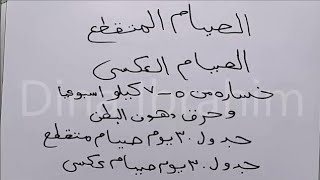 الصيام المتقطع
الصيام العكسى
خساره من ٥ - ٧ كيلو اسبوعيا
وحرق دهون البطن
جدول ٣٠ يوم صيام متقطع
جدول ٣٠ يوم صيام عكسى